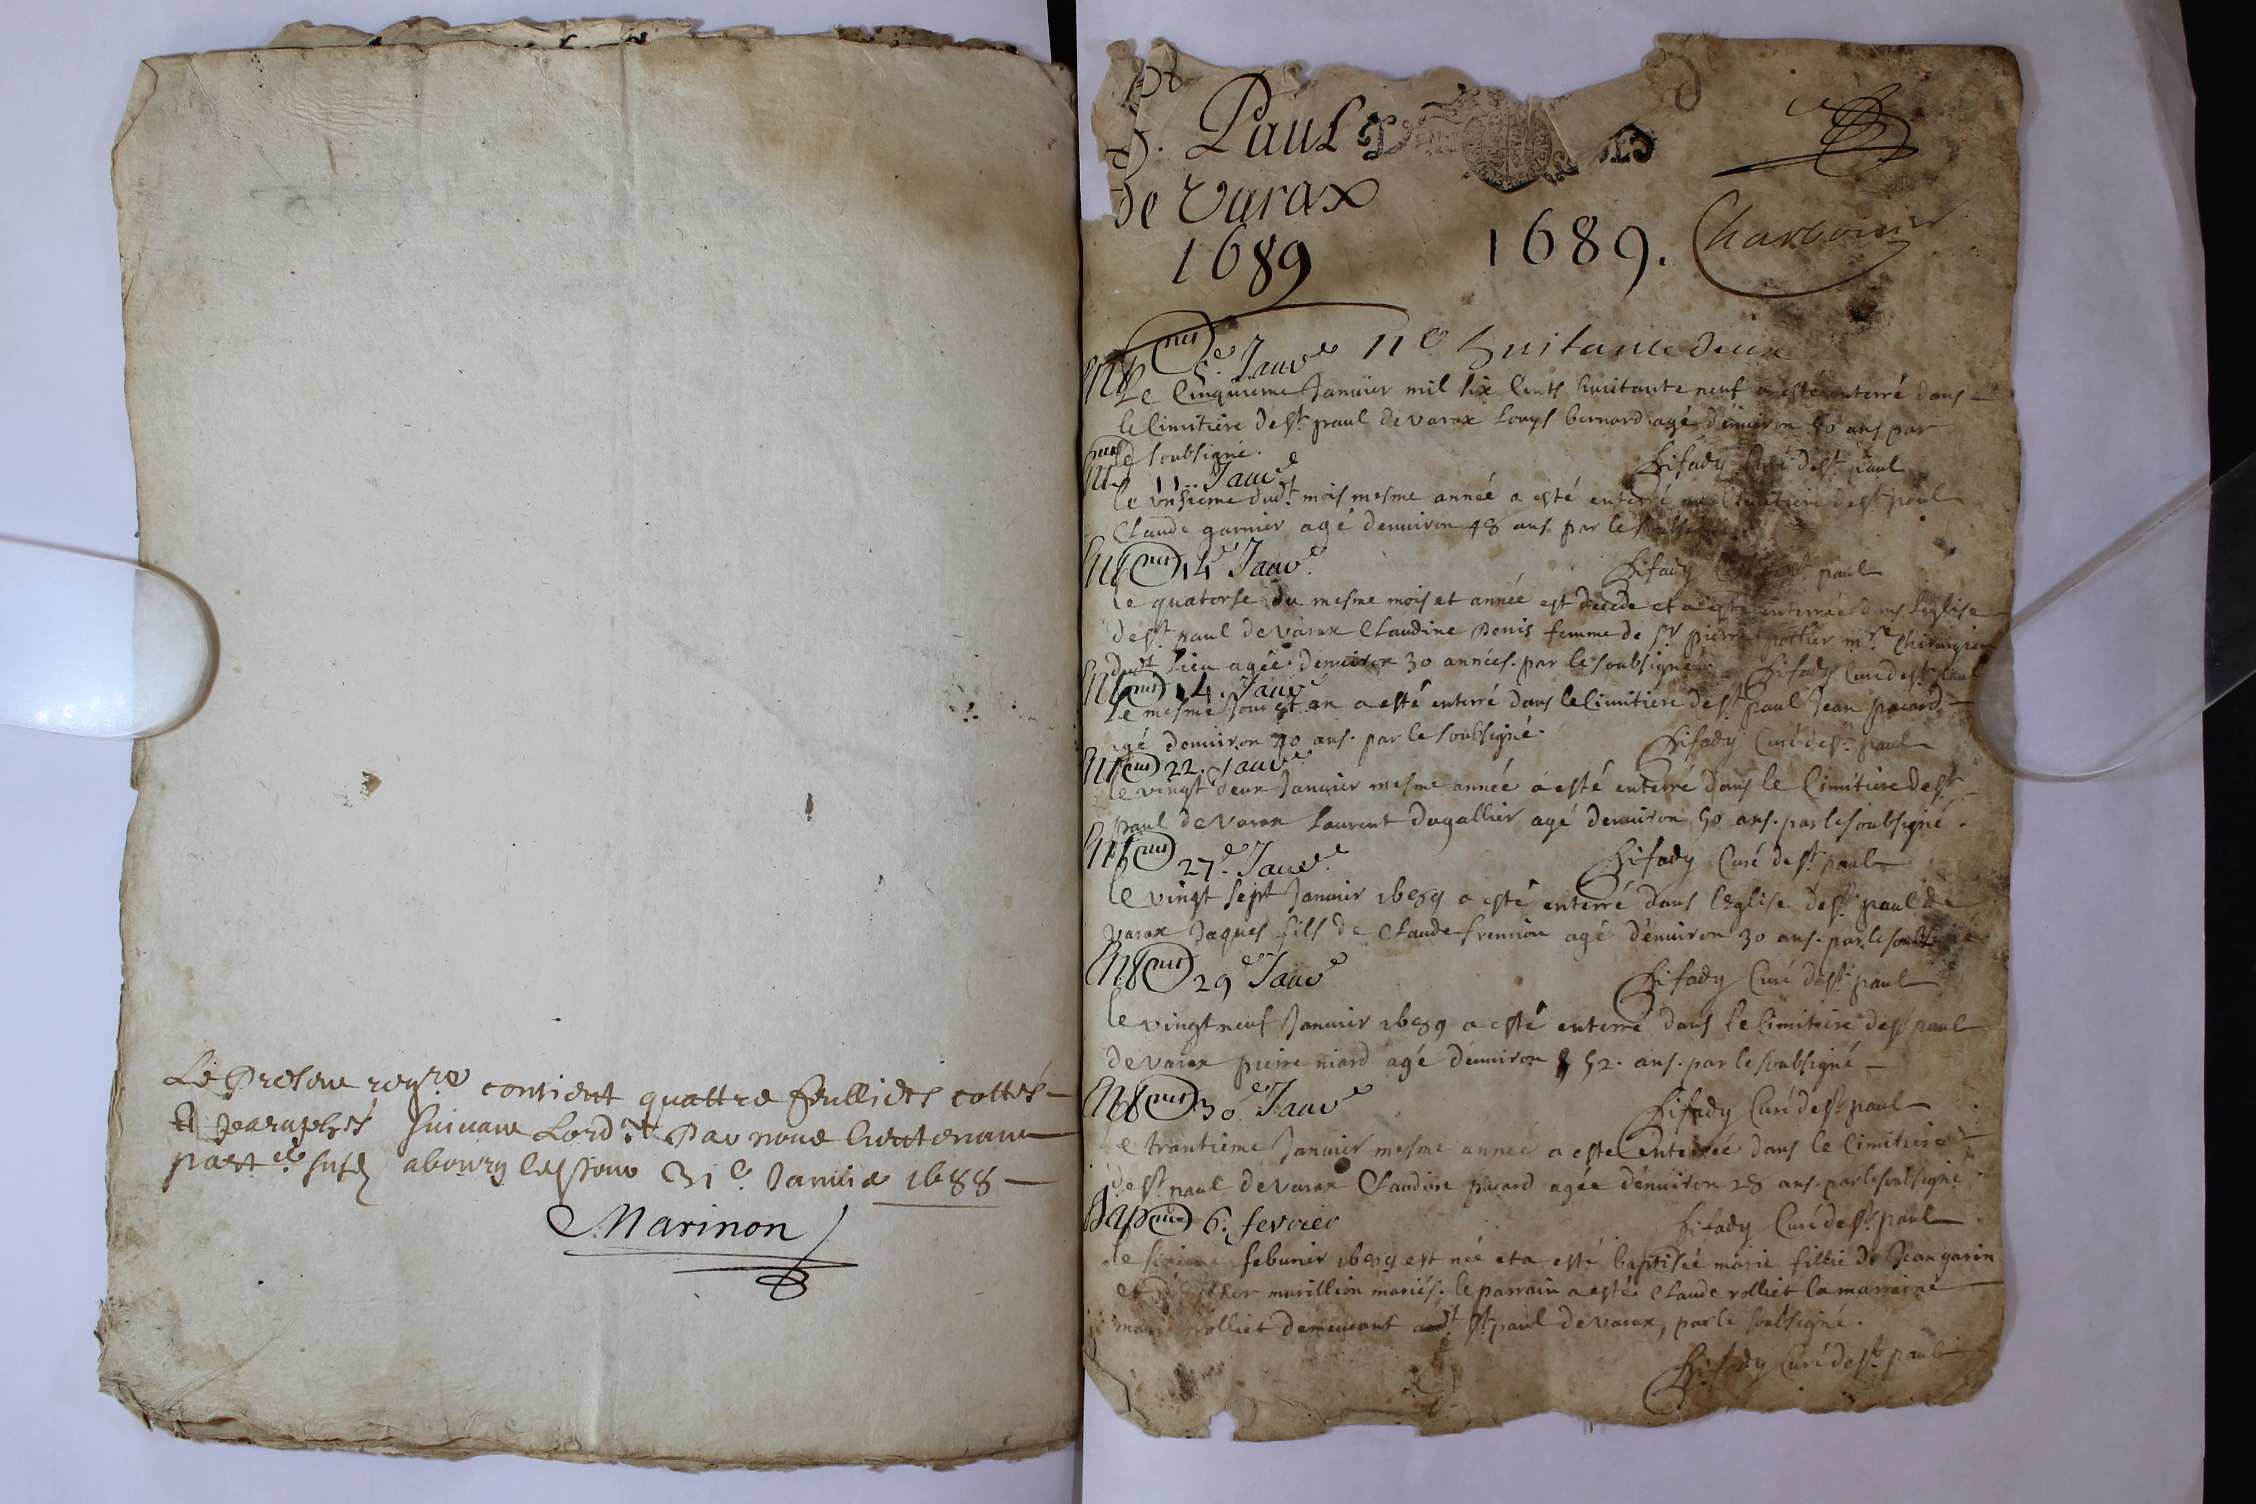 Le Present reg.re contient quattre feulliets cottés
et paraphés suivant Lord.ce Par nous Lieutenant
part.el susd abourg ce jour 31.e Janvie 1688
Marinon
S. Paul
de Varax
1689
1689. Charbonier
11e huitante deux
5e. Janve
Le Cinquieme Januier mil six cents huitante neuf a esté enterré dans
le Cimitiere de st. paul de varax Louys bernard agé d'enuiron 50 ans par
le soubsigné.
fifady Curé de st. paul
11. Janve
le onsieme dudt mois mesme année a esté enterré au Cimitiere de st paul
Claude garnier agé denuiron 48 ans par le soubsigné
14e Janve.
fifady Curé de st. paul
le quatorse du mesme mois et année est decede et a esté enterrée dans l'eglise
de st. paul de varax Claudine Denis femme de sr pierre pottier mre Chirurgien
dudt lieu agée denuiron 30 années. par le soubsigné.
fifady Curé de st. paul
14. Janve
Le mesme jour et an a esté enterré dans le Cimitiere de st paul Jean pacard
agé denuiron 40 ans. par le soubsigné.
fifady Curé de st. paul
22. Janve
le vingt deux Januier mesme année a esté enterré dans le Cimitiere de st.
paul de varax Laurent Dugallier agé denuiron 50 ans. par le soubsigné.
27e. Janve.
fifady Curé de st. paul
le vingt sept Januier 1689 a esté enterré dans l'Eglise de st. paul de
varax Jaques fils de Claude fremion agé d'enuiron 30 ans. par le soubsigné
29e Janve
fifady Curé de st. paul
le vingt neuf Januier 1689 a esté enterré dans le Cimitiere de st paul
de varax pierre niard agé d'enuiron 52. ans. par le soubsigné
30e Janve
fifady Curé de st. paul
Le trantieme Januier mesme année a esté enterrée dans le Cimitiere
de st. paul de varax Claudine pacard agée d'enuiron 28 ans. par le soubsigné
6. fevrier
fifady Curé de st. paul
le sixieme feburier 1689 est née et a esté baptisée marie fillie de Jean garin
et murillion mariés. le parrain a esté Claude rolliet la marraine
marie rolliet demeurant audt. st. paul de varax, par le soubsigné.
fifady Curé de st. paul